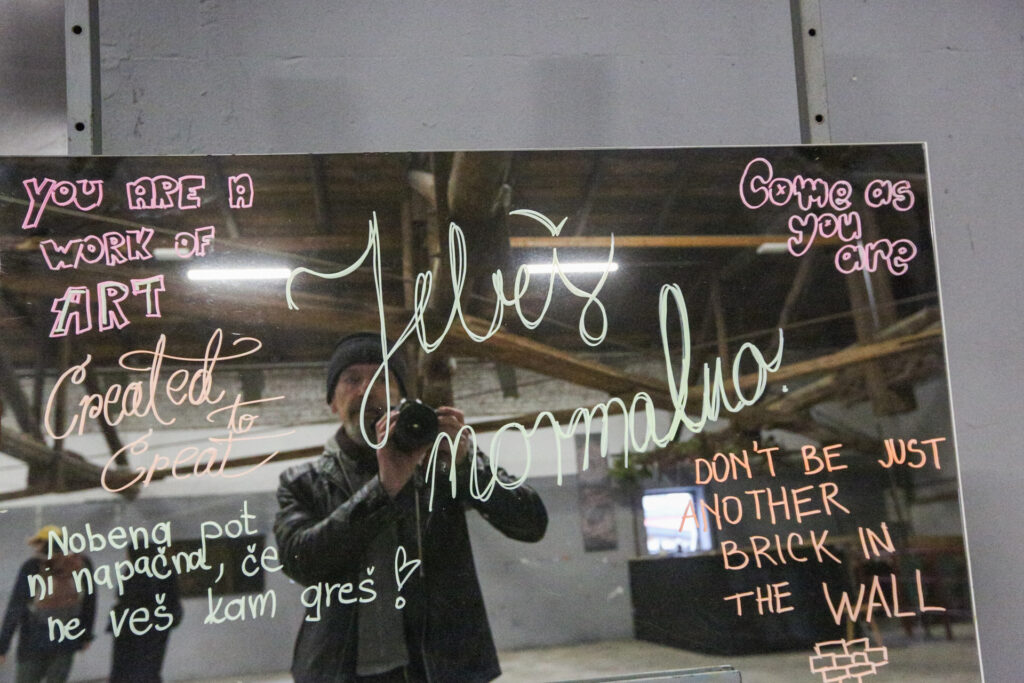 YOU ARE A
WORK OF
ART
Created
to
Creat
Nobena pot
ni napačna, če
ne veš kam greš!
Jebeš
normalno.
Come as
you
are
DON'T BE JUST
ANOTHER
BRICK IN
THE WALL